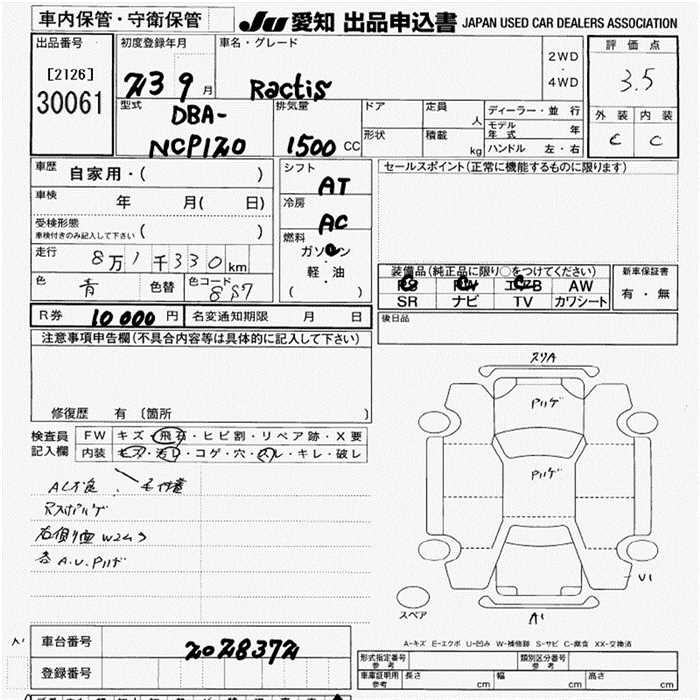 車内保管・守衛保管
JU 愛知 出品申込書 JAPAN USED CAR DEALERS ASSOCIATION
出品番号
[2126]
30061
初度登録年月
23 9 月
車名・グレード
Ractis
2WD
・
4WD
評価点
3.5
外装 内装
C C
型式
DBA-
NCP120
排気量
1500 CC
ドア
定員
人
形状
積載
kg
ディーラー・並行
モデル年式 年
ハンドル 左・右
車歴 自家用・( )
車検 年 月( 日)
受検形態
車検付きのみ記入して下さい ( )
走行 8万1千330km
色 青 色替 色コード 8S7
シフト
AT
冷房
AC
燃料
ガソリン
・
軽・油
( )
セールスポイント(正常に機能するものに限ります)
装備品(純正品に限り○をつけてください)
PS PW エアB AW
SR ナビ TV カワシート
新車保証書
有・無
R券 10000 円 名変通知期限 月 日
後日品
注意事項申告欄(不具合内容等は具体的に記入して下さい)
修復歴 有 〔箇所 〕
検査員
記入欄
FW キズ・飛石・ヒビ割・リペア跡・X要
内装 キズ・汚レ・コゲ・穴・スレ・キレ・破レ
右側り面 W2ム3
各 A.U.Pハゲ
スリA
Pハゲ
Pハゲ
U1
A1
スペア
A-キズ E-エクボ U-凹み W-補修跡 S-サビ C-腐食 XX-交換済
A1
車台番号 2028372
登録番号
形式指定番号
参考
類別区分番号
参考
車庫証明用
参考
長さ cm 幅 cm 高さ cm